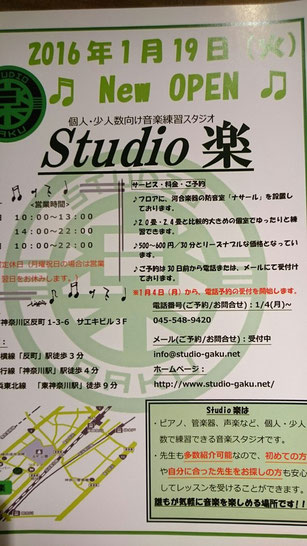 2016年1月19日(火)
♫ New OPEN ♫
STUDIO
GAKU
個人・少人数向け音楽練習スタジオ
Studio 楽
<営業時間>
10:00～13:00
14:00～22:00
10:00～22:00
定休日(月曜祝日の場合は営業
翌日をお休みします。
サービス・料金・ご予約
♪フロアに、河合楽器の防音室「ナサール」を設置し
ております。
♪2.0畳・2.4畳と比較的大きめの個室でゆったりと練
習できます。
♪500～600円/30分とリーズナブルな価格となってい
ます。
♪ご予約は30日前から電話または、メールにて受付け
ております。
※1月4日(月)から、電話予約の受付を開始します。
電話番号(ご予約/お問合せ):1/4(月)~
045-548-9420
メール(ご予約/お問合せ):受付中
info@studio-gaku.net
ホームページ:
http://www.studio-gaku.net/
神奈川区反町1-3-6 サエキビル3F
横線「反町」駅徒歩3分
行線「神奈川駅」駅徒歩4分
浜東北線「東神奈川駅」徒歩9分
Studio楽は
・ピアノ、管楽器、声楽など、個人・少人
数で練習できる音楽スタジオです。
・先生も多数紹介可能なので、初めての方
や自分に合った先生をお探しの方も安心
してレッスンを受けることができます。
誰もが気軽に音楽を楽しめる場所です!!